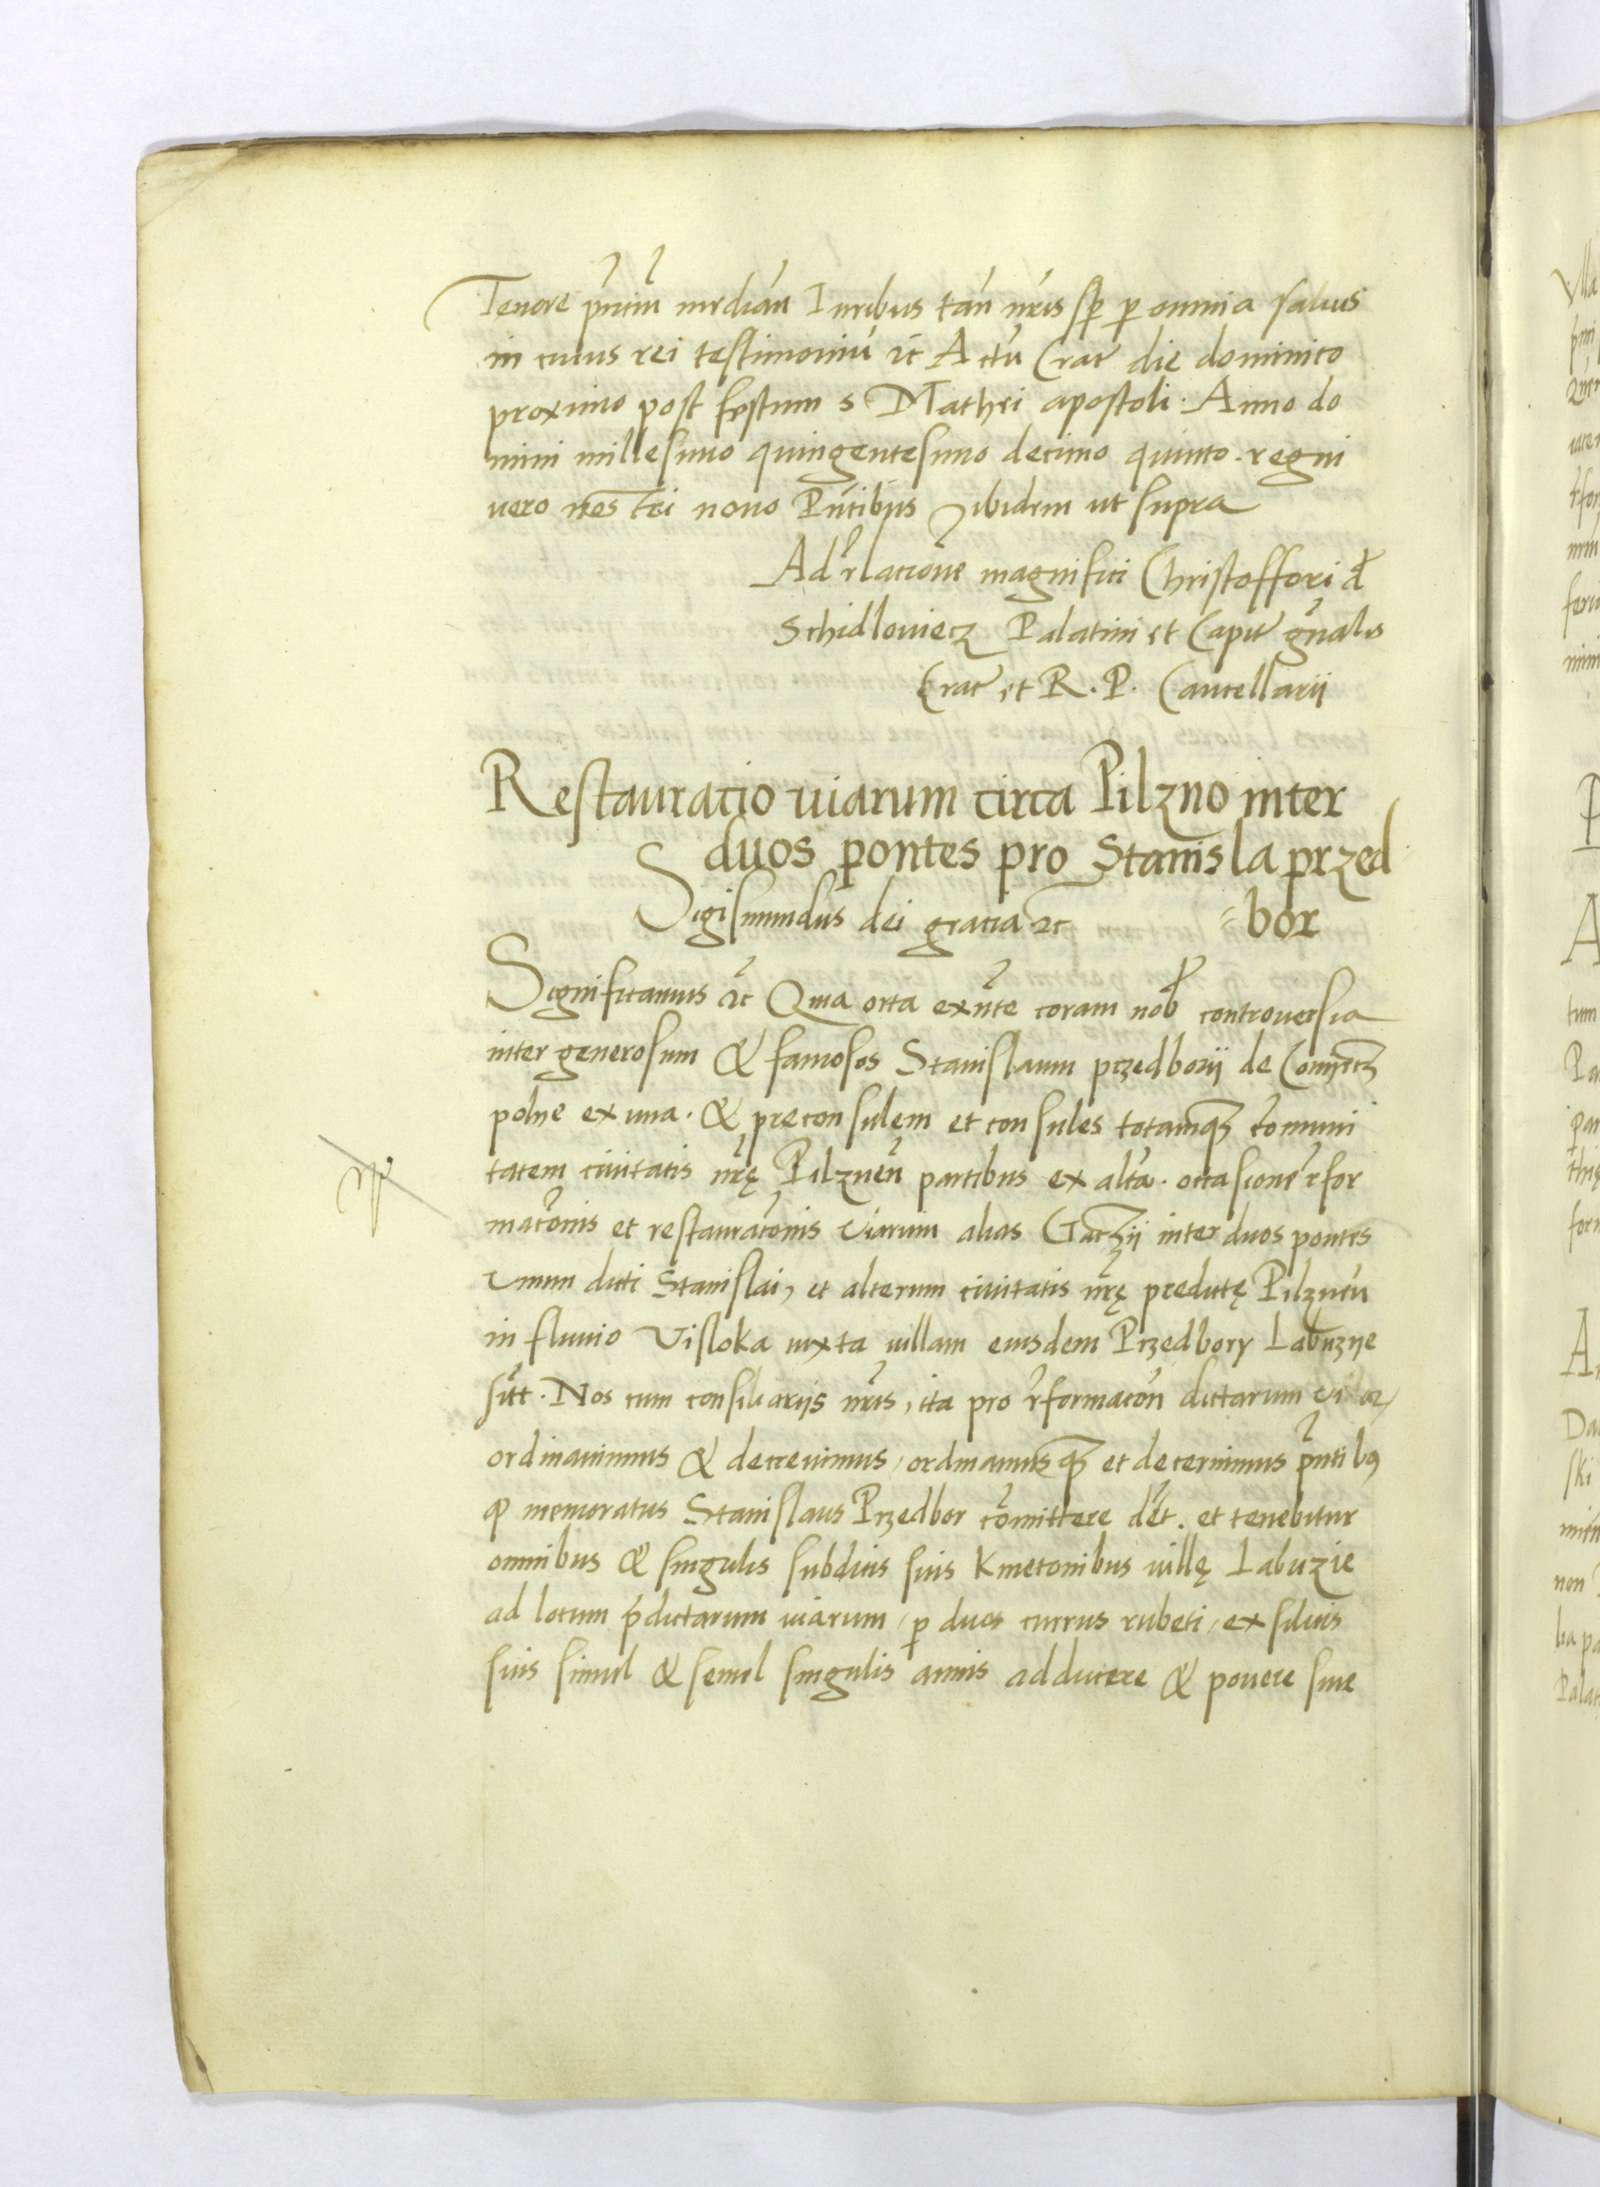 Tenore pñtiũ mediãn Iuribus tãn nr̃is sp̃ p omnia saluis
in cuius rei testimoniũ ⁊c Actũ Crac̃ die dominico
proximo post festum s Mathei apostoli. Anno do
mini millesimo quingentesimo decimo quinto. regni
vero nos tri nono Pñtibus ibidem ut supra
Ad r̃lacionẽ magnifici Christoffori d̃
Schidloviecz Palatini et Capit̃ gñalis
Crac̃ et R. P. Cancellarii
Restauratio viarum circa Pilzno inter
duos pontes pro Stanisla przed
=bor
Sigismundus dei gratia ⁊c
Significamus ⁊c̃ Quia orta exñte coram nob̃ controversia
inter generosum & famosos Stanislaum przedborii de
polye ex una. & preconsulem et consules totamqȝ cõmuni
tatem civitatis nr̃ę Pilznen̄ partibus ex altã. occasione r̃for
mac̃onis et restaurac̃onis viarum alias Gaczii inter duos pontes
unum dicti Stanislai, et alterum civitatis nr̃ę predictę Pilznen̄
in fluvio Visloka iuxta villam eiusdem Przedbory Labuzye
sit̃t. Nos cum consiliariis nr̃is, ita pro r̃formac̃on̄ dictarum viaꝝ
ordinavimus & decrevimus, ordinamusqȝ et decernimus p̃ntibꝰ
ꝙ memoratus Stanislaus Przedbor cõmittere deb̃t. et tenebitur
omnibus & singulis subditis suis Kmetonibus villę Labuzie
ad locum p̃dictarum viarum, p duos currus rubeti, ex silvis
suis simul & semel singulis annis adducere & ponere sine